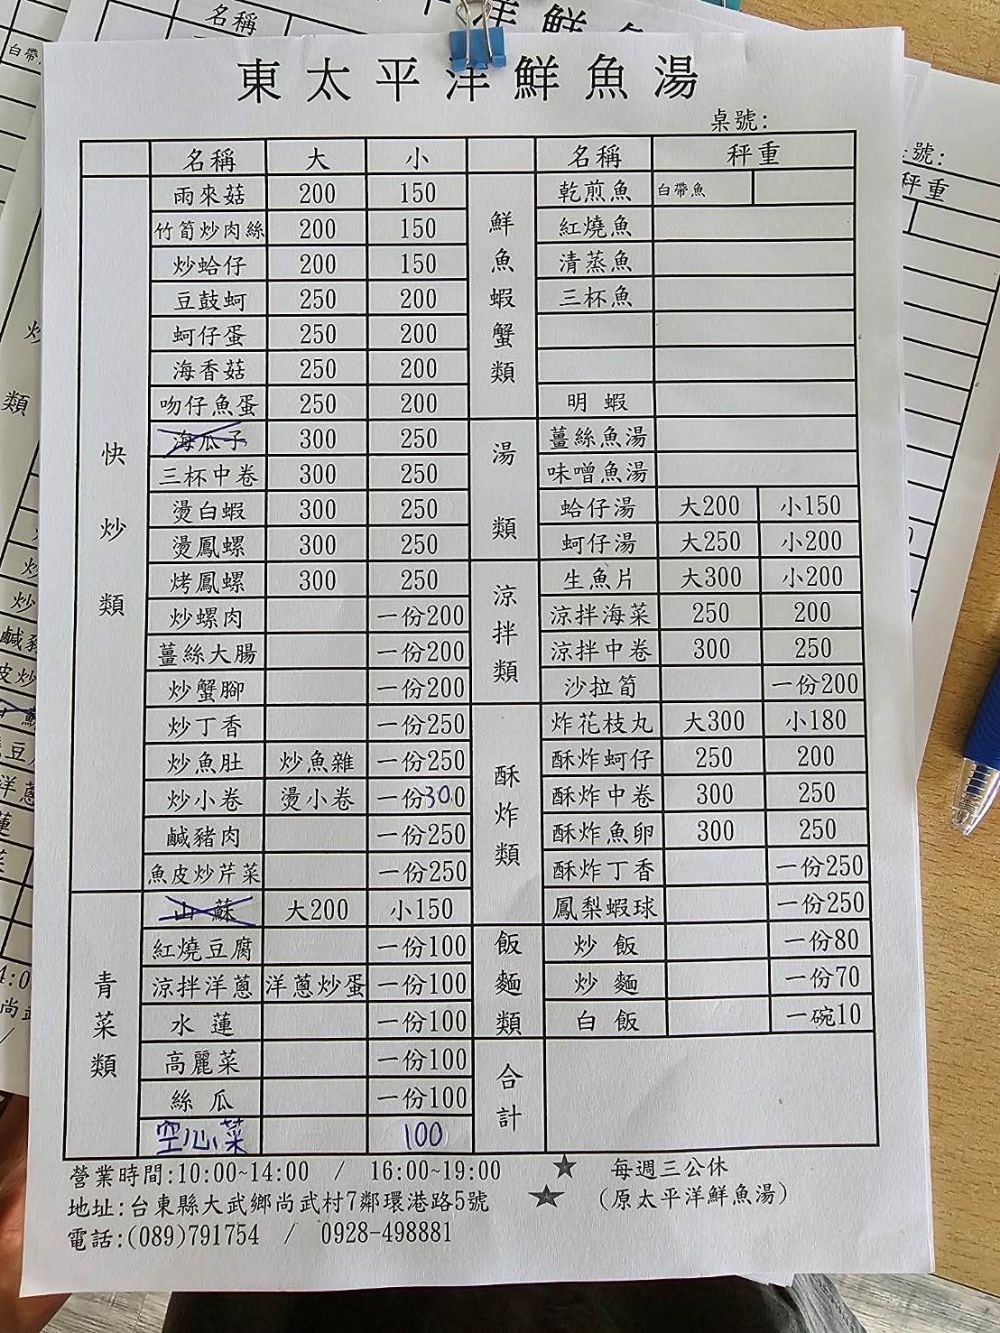 東太平洋鮮魚湯
桌號:
名稱 大 小 名稱 秤重
快炒類
雨來菇 200 150
竹筍炒肉絲 200 150
炒蛤仔 200 150
豆鼓蚵 250 200
蚵仔蛋 250 200
海香菇 250 200
吻仔魚蛋 250 200
海瓜子 300 250
三杯中卷 300 250
燙白蝦 300 250
燙鳳螺 300 250
烤鳳螺 300 250
炒螺肉 一份200
薑絲大腸 一份200
炒蟹腳 一份200
炒丁香 一份250
炒魚肚 炒魚雜 一份250
炒小卷 燙小卷 一份300
鹹豬肉 一份250
魚皮炒芹菜 一份250
青菜類
山蘇 大200 小150
紅燒豆腐 一份100
涼拌洋蔥 洋蔥炒蛋 一份100
水蓮 一份100
高麗菜 一份100
絲瓜 一份100
空心菜 100
鮮魚蝦蟹類
乾煎魚 白帶魚
紅燒魚
清蒸魚
三杯魚
明蝦
湯類
薑絲魚湯
味噌魚湯
蛤仔湯 大200 小150
蚵仔湯 大250 小200
涼拌類
生魚片 大300 小200
涼拌海菜 250 200
涼拌中卷 300 250
沙拉筍 一份200
酥炸類
炸花枝丸 大300 小180
酥炸蚵仔 250 200
酥炸中卷 300 250
酥炸魚卵 300 250
酥炸丁香 一份250
鳳梨蝦球 一份250
飯麵類
炒飯 一份80
炒麵 一份70
白飯 一碗10
合計
營業時間:10:00~14:00 / 16:00~19:00 ★ 每週三公休
地址:台東縣大武鄉尚武村7鄰環港路5號 ★ (原太平洋鮮魚湯)
電話:(089)791754 / 0928-498881